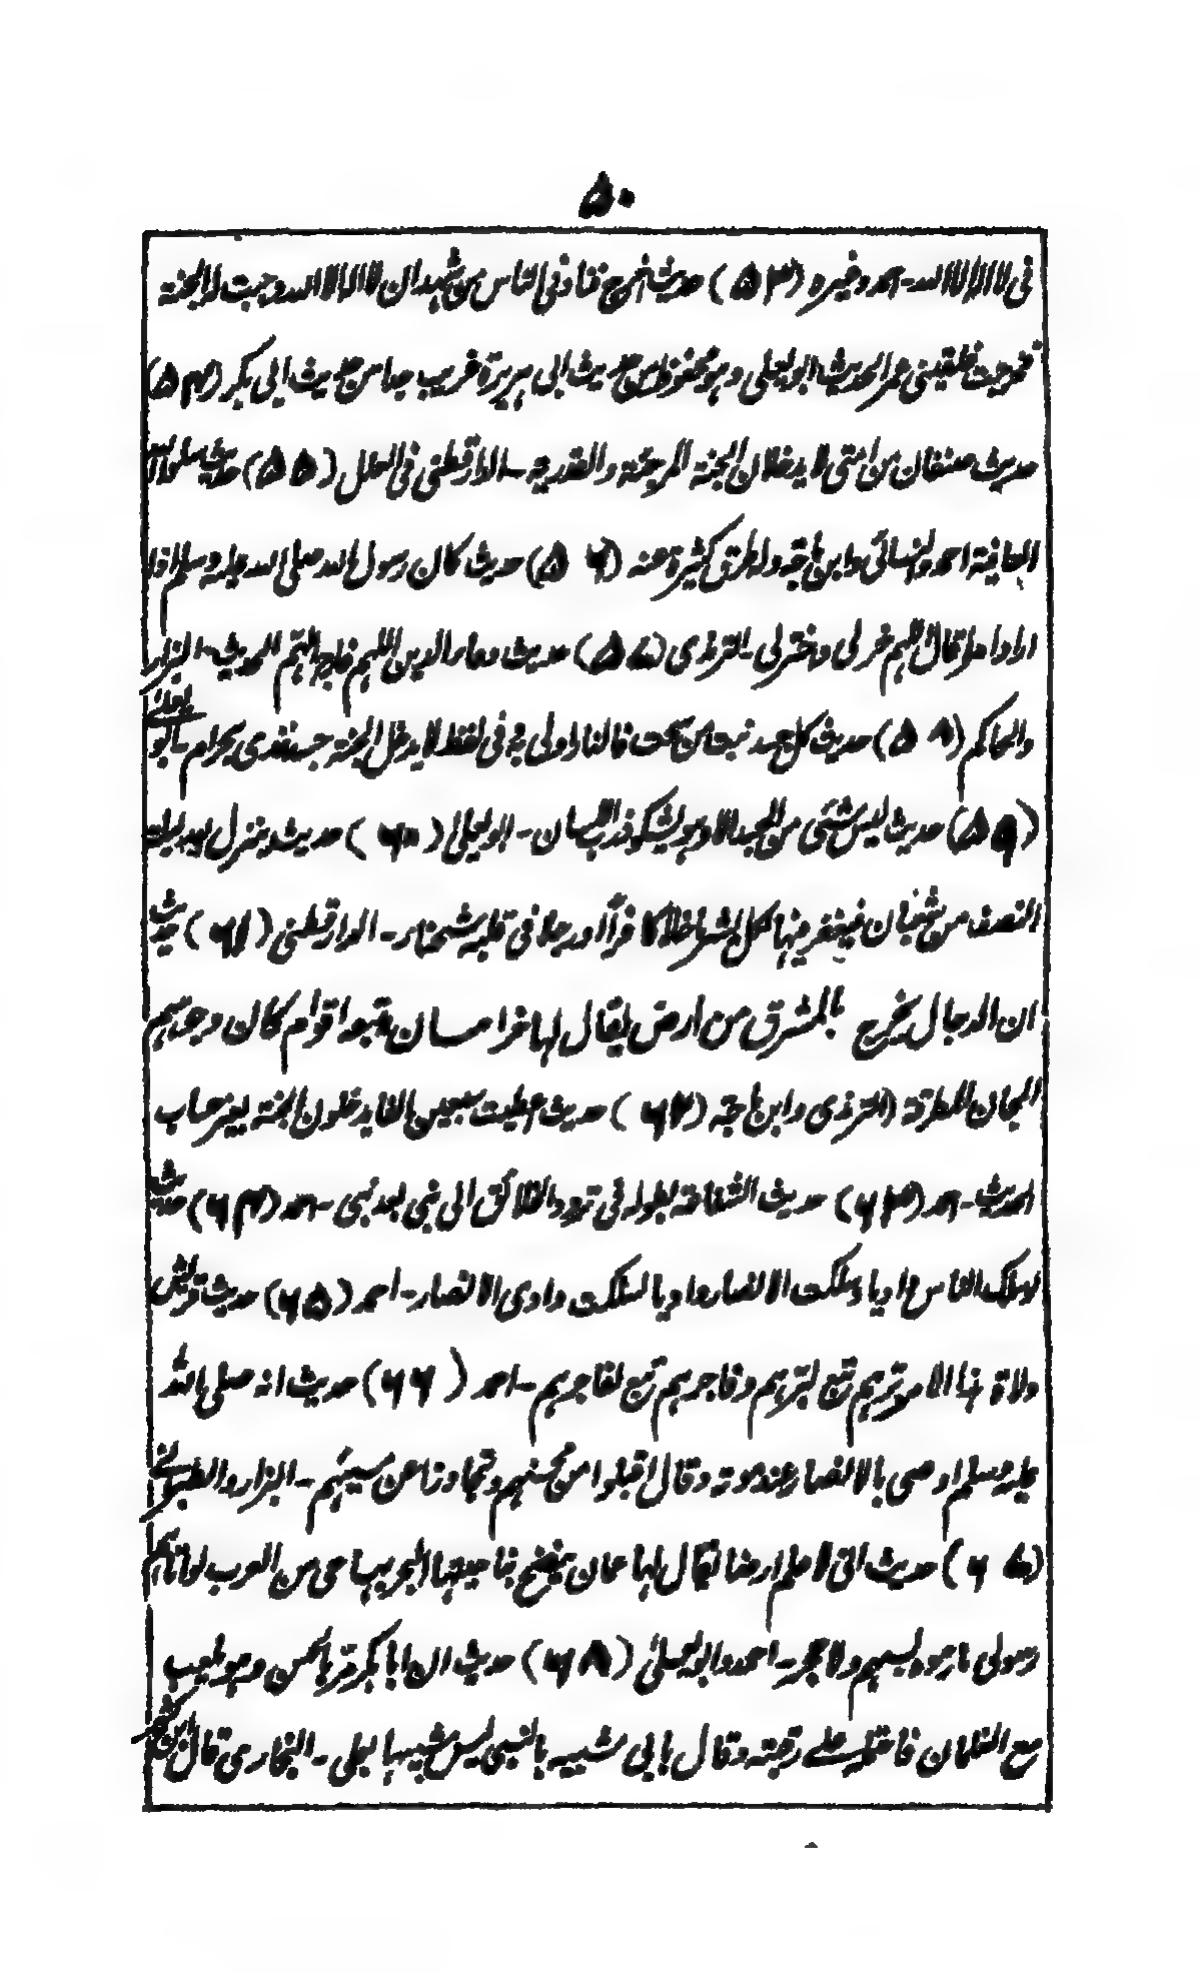 ۵۰
فی لا الہ الا اللہ - احمد وغیرہ (۵۳) حدیث اخرج فناد فی الناس من شهد ان لا الہ الا اللہ وجبت لہ الجنة
فخرجت فلقینی عمر الحدیث ابو یعلی وہو محفوظ من حدیث ابی ہریرة غریب جدا من حدیث ابی بکر (۵۴)
حدیث صنفان من امتی لا یدخلان الجنة المرجئة والقدریہ - الدارقطنی فی العلل (۵۵) حدیث سلوا اللہ
العافیة احمد والنسائی وابن ماجة وله طرق کثیرة عنہ (۵۶) حدیث کان رسول اللہ صلی اللہ علیہ وسلم اذا
اراد امرا قال اللہم خر لی واختر لی - الترمذی (۵۷) حدیث دعاء الدین اللہم فارج الہم الحدیث - البزار
والحاکم (۵۸) حدیث کل جسد نبت من سحت فالنار اولی بہ فی لفظ لا یدخل الجنة جسد غذی بحرام - ابو یعلی
(۵۹) حدیث لیس شئی من الجسد الا وہو یشکو ذرب اللسان - ابو یعلی (۶۰) حدیث ینزل اللہ لیلة
النصف من شعبان فیغفر فیها لکل بشر ما خلا کافرا او رجلا فی قلبہ شحناء - الدارقطنی (۶۱) حدیث
ان الدجال یخرج بالمشرق من ارض یقال لہا خراسان یتبعہ اقوام کان وجوہہم
المجان المطرقة الترمذی وابن ماجة (۶۲) حدیث اعطیت سبعین الفا یدخلون الجنة بغیر حساب
الحدیث - احمد (۶۳) حدیث الشفاعة بطولہ فی تردد الخلائق الی نبی بعد نبی - احمد (۶۴) حدیث
لو سلک الناس وادیا وسلکت الانصار وادیا لسلکت وادی الانصار - احمد (۶۵) حدیث قریش
ولاة ہذا الامر برہم تبع لبرہم وفاجرہم تبع لفاجرہم - احمد (۶۶) حدیث انہ صلی اللہ
علیہ وسلم اوصی بالانصار عند موتہ وقال اقبلوا من محسنہم وتجاوزوا عن مسیئہم - البزار والطبرانی
(۶۷) حدیث انی لاعلم ارضا یقال لہا عمان ینضح بناحیتہا البحر بہا حی من العرب لو اتاہم
رسولی ما رموہ بسہم ولا حجر - احمد وابو یعلی (۶۸) حدیث ان ابا بکر مر بالحسن وہو یلعب
مع الغلمان فاحتملہ علی رقبتہ وقال بابی شبیہ بالنبی لیس شبیہا بعلی - البخاری قال ابن کثیر